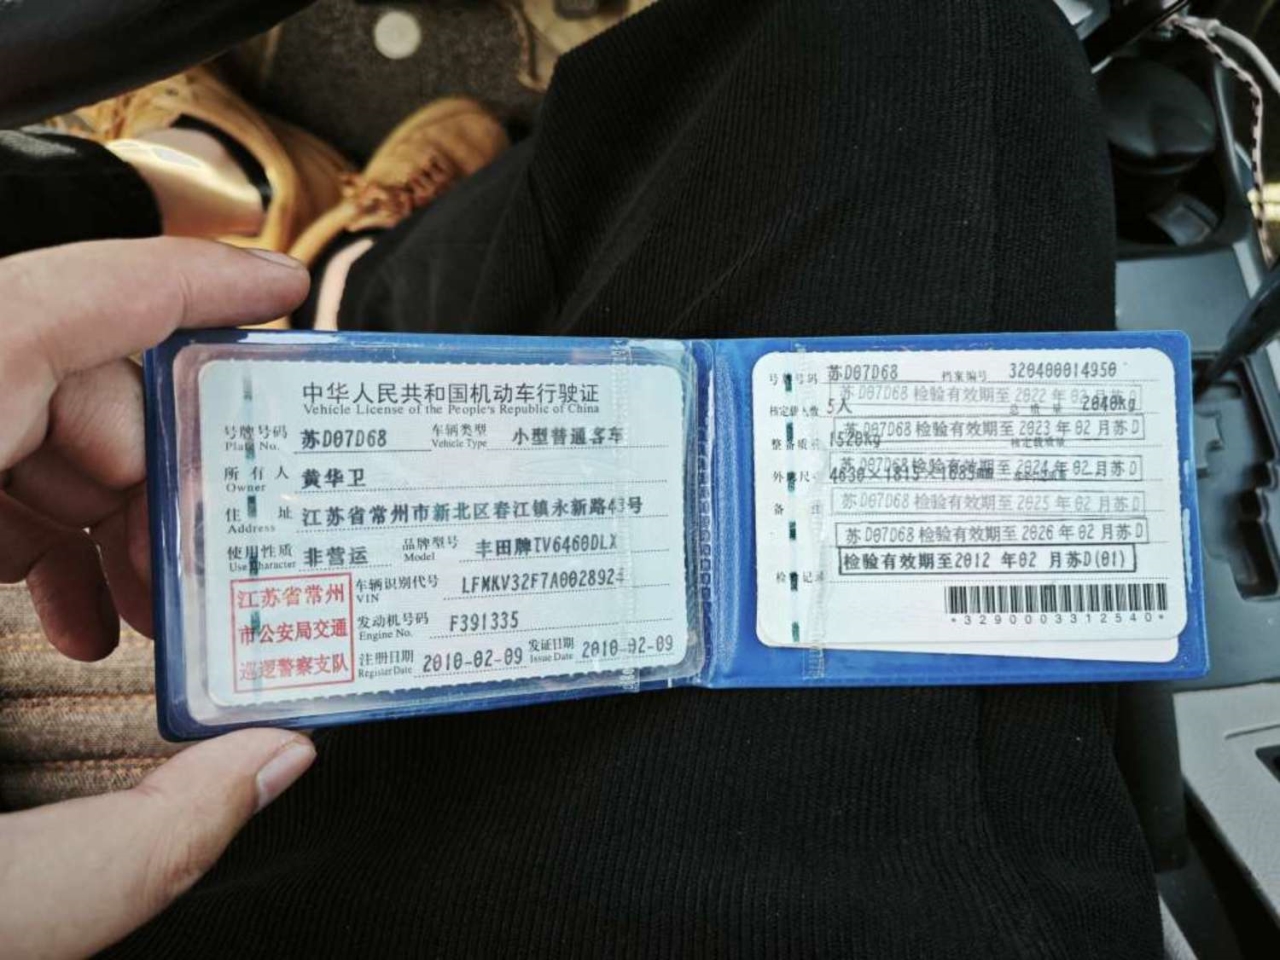 中华人民共和国机动车行驶证
Vehicle License of the People's Republic of China
号牌号码 Plate No. 苏D07D68 车辆类型 Vehicle Type 小型普通客车
所有人 Owner 黄华卫
住址 Address 江苏省常州市新北区春江镇永新路43号
使用性质 Use Character 非营运 品牌型号 Model 丰田牌TV6460DLX
江苏省常州
市公安局交通
巡逻警察支队
车辆识别代号 VIN LFMKV32F7A0028924
发动机号码 Engine No. F391335
注册日期 Register Date 2010-02-09 发证日期 Issue Date 2010-02-09
号牌号码 苏D07D68 档案编号 320400014950
苏D07D68 检验有效期至 2022 年 02 月苏D
核定载人数 5人 总质量 2040kg
苏D07D68 检验有效期至 2023 年 02 月苏D
整备质量 1520kg 核定载质量
苏D07D68 检验有效期至 2024 年 02 月苏D
外廓尺寸 4630×1815×1685mm
苏D07D68 检验有效期至 2025 年 02 月苏D
备注
苏D07D68 检验有效期至 2026 年 02 月苏D
检验有效期至2012 年02 月苏D(01)
检验记录
*3290003312540*